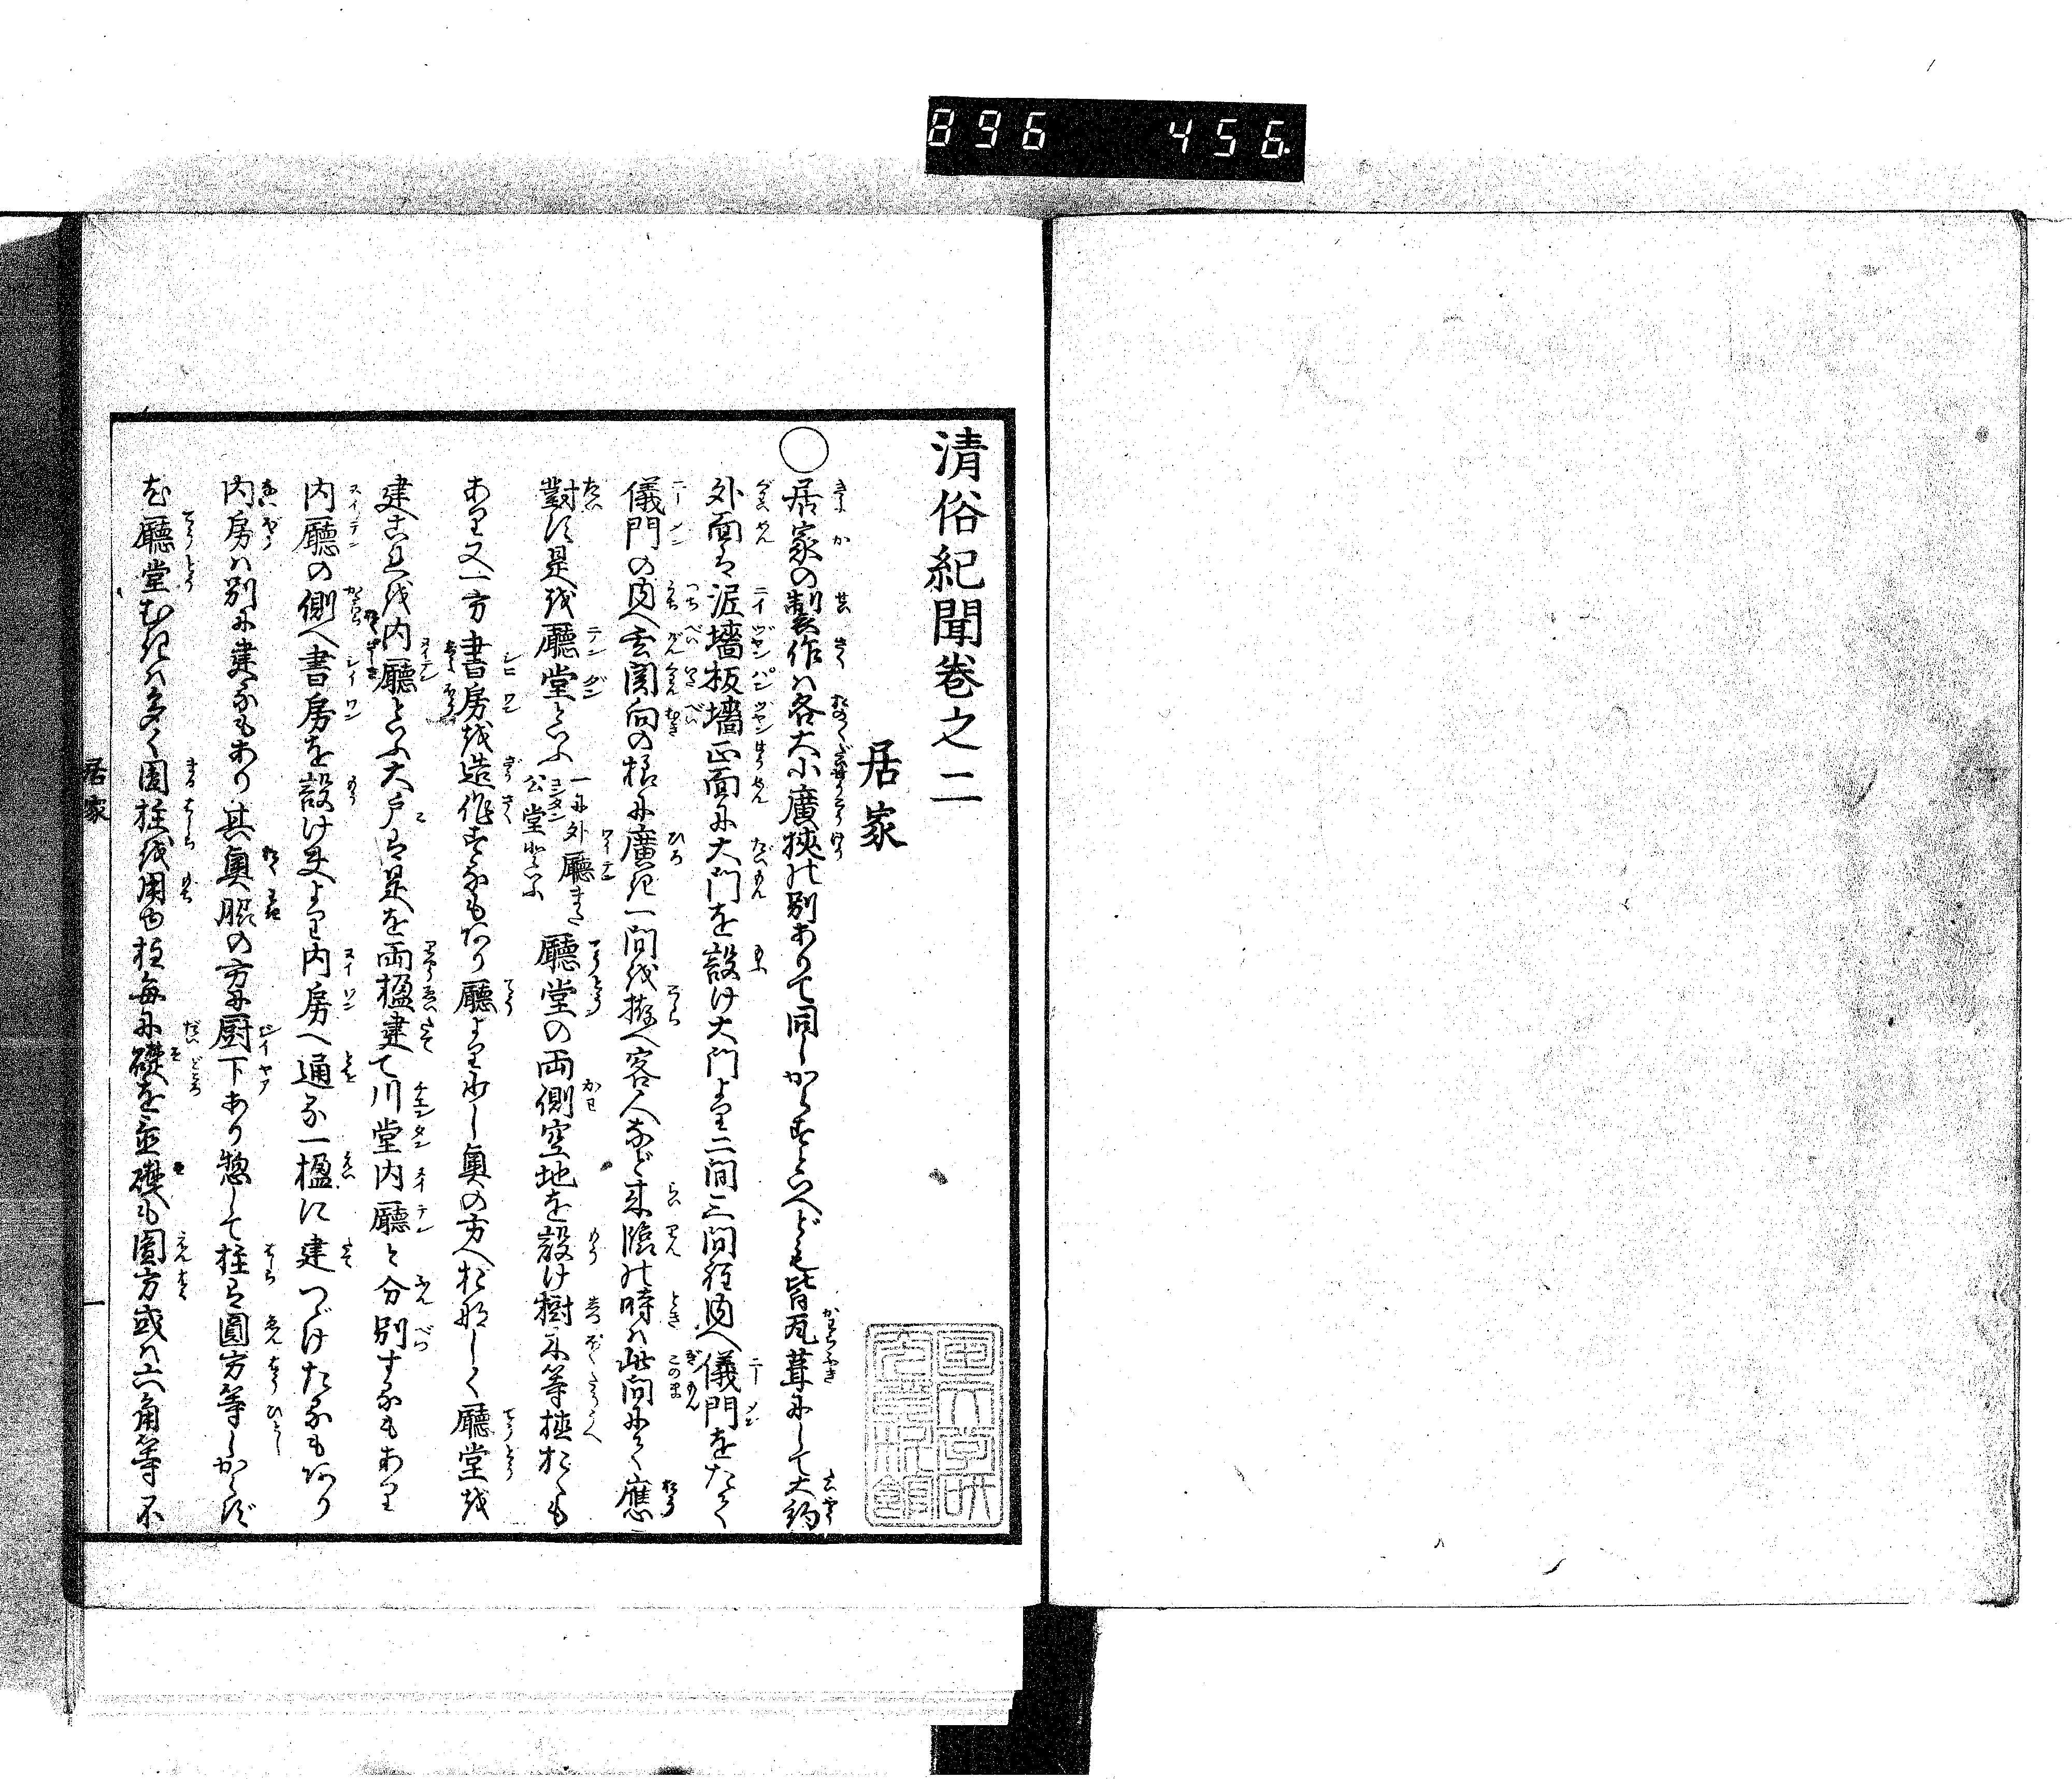 896 456
清俗紀聞巻之二
居家
○居家の製作ハ各大小廣狹の別ありて同しからすといへども皆瓦葺にして大約
外面は泥墻板墻正面に大門を設け大門より二間三間程内へ儀門をたてく
儀門の内へ玄関向の様に廣き一間を拵へ客人など来臨の時ハ此間にて應
對す是を廳堂といふ一に外廳また公堂ともいふ廳堂の両側空地を設け樹木等植おくも
あり又一方書房を造作するもあり廳より少し奥の方へおなしく廳堂を
建これを内廳といふ大戸は是を両楹建て川堂内廳と分別するもあり
内廳の側へ書房を設け夫より内房へ通る一楹に建つゞけたるもあり
内房ハ別に建るもあり其奥脇の方に厨下あり惣して柱は圓方等しからず
尤廳堂むきハ多く圓柱を用ゆ柱毎に礎を並礎も圓方或ハ六角等不
居家
一